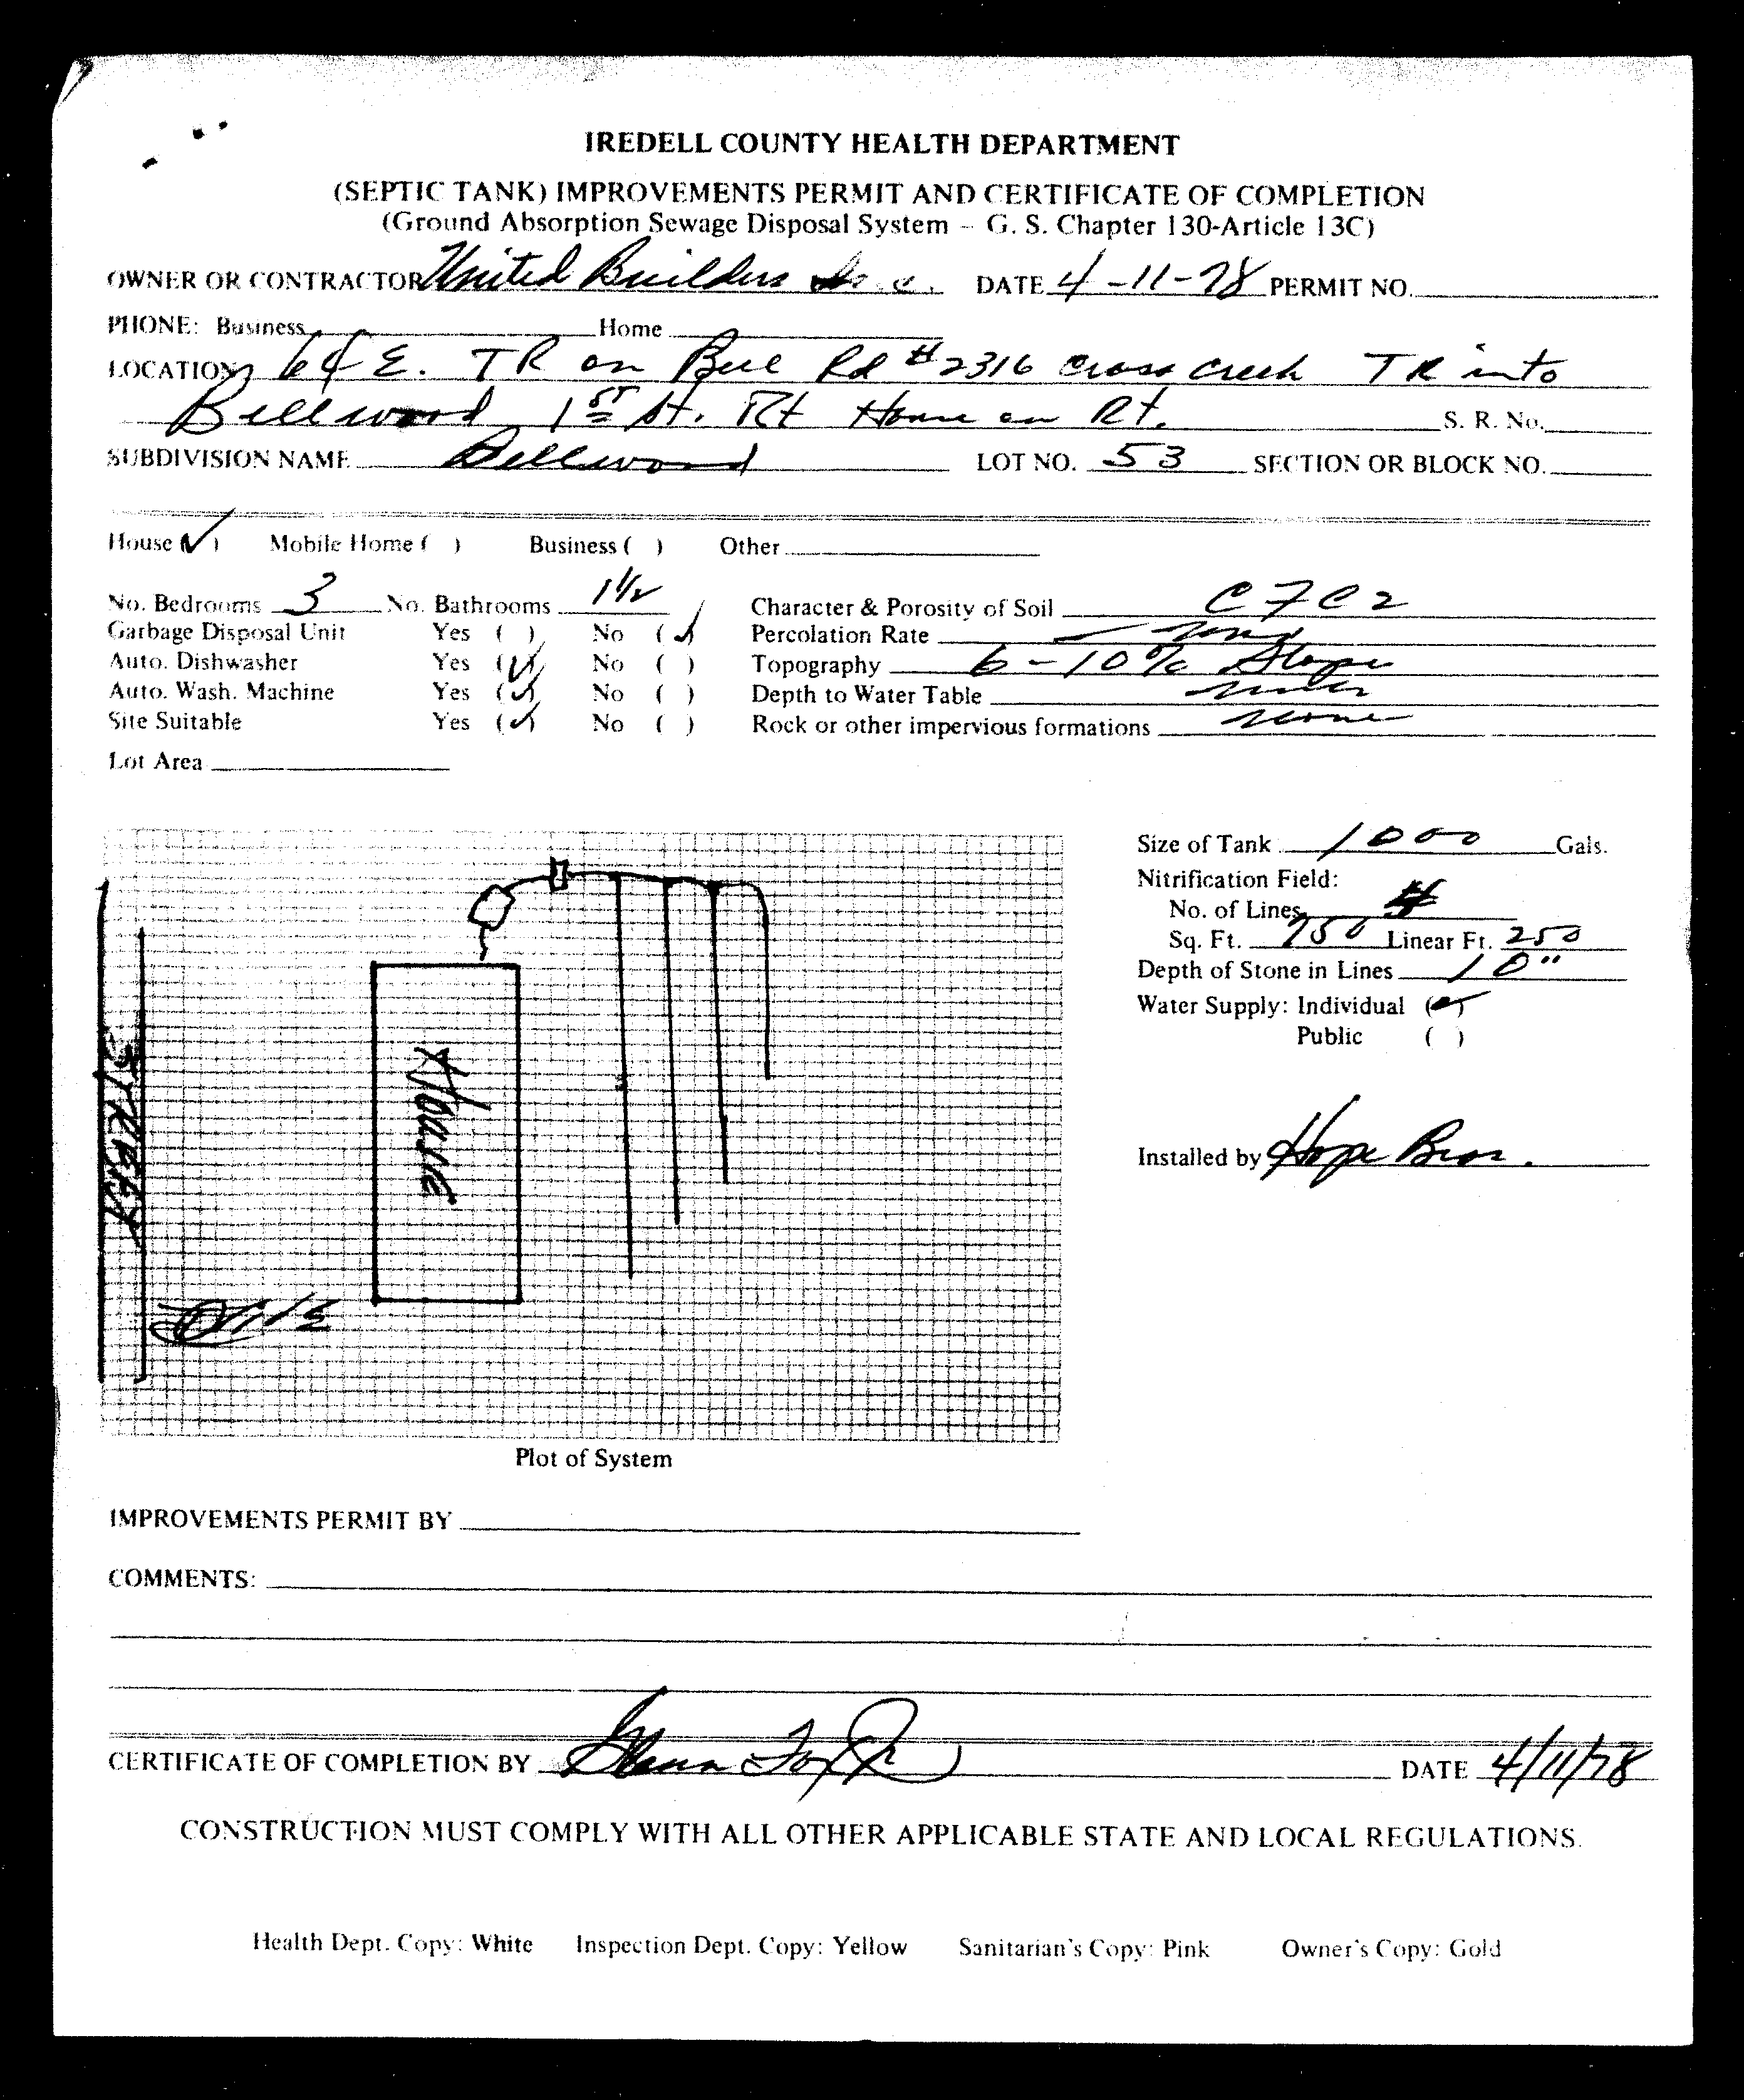 IREDELL COUNTY HEALTH DEPARTMENT
(SEPTIC TANK) IMPROVEMENTS PERMIT AND CERTIFICATE OF COMPLETION
(Ground Absorption Sewage Disposal System – G. S. Chapter 130-Article 13C)
OWNER OR CONTRACTOR United Builders Inc. DATE 4-11-78 PERMIT NO.
PHONE: Business Home
LOCATION 64 E. TR on Bell Rd #2316 cross creek TR into
Bellwood 1st St. Rt Home on Rt. S. R. No.
SUBDIVISION NAME Bellwood LOT NO. 53 SECTION OR BLOCK NO.
House (✓) Mobile Home ( ) Business ( ) Other
No. Bedrooms 3 No. Bathrooms 1 1/2 Character & Porosity of Soil C7C2
Garbage Disposal Unit Yes ( ) No (✓) Percolation Rate
Auto. Dishwasher Yes (✓) No ( ) Topography 6-10% Slope
Auto. Wash. Machine Yes (✓) No ( ) Depth to Water Table
Site Suitable Yes (✓) No ( ) Rock or other impervious formations none
Lot Area
Size of Tank 1000 Gals.
Nitrification Field:
No. of Lines 4
Sq. Ft. 750 Linear Ft. 250
Depth of Stone in Lines 10"
Water Supply: Individual (✓)
Public ( )
STREET
House
Installed by Hope Bros.
Plot of System
IMPROVEMENTS PERMIT BY
COMMENTS:
CERTIFICATE OF COMPLETION BY DATE 4/11/78
CONSTRUCTION MUST COMPLY WITH ALL OTHER APPLICABLE STATE AND LOCAL REGULATIONS.
Health Dept. Copy: White Inspection Dept. Copy: Yellow Sanitarian's Copy: Pink Owner's Copy: Gold